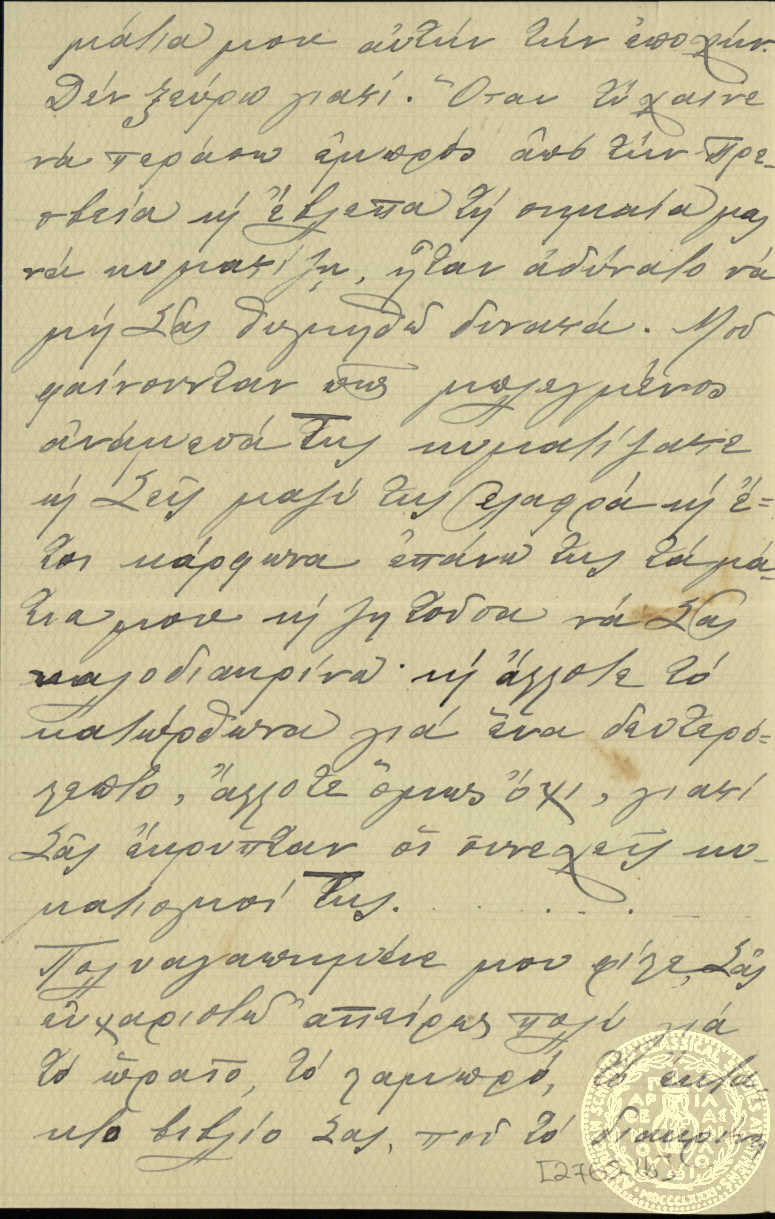 μάτια μου αὐτὴν τὴν ἐποχήν.
Δὲν ξεύρω γιατί. Ὅταν τύχαινε
νὰ περάσω ἐμπρὸς ἀπὸ τὴν Πρε-
σβεία κὶ ἔβλεπα τὴ σημαία μας
νὰ κυματίζῃ, ἦταν ἀδύνατο νὰ
μὴ Σᾶς θυμηθῶ δυνατά. Μοῦ
φαίνουνταν πῶς μπλεγμένος
ἀνάμεσά Της κυματίζατε
κὶ Σεῖς μαζύ της ἐλαφρὰ κὶ ἔ-
τσι κάρφωνα ἐπάνω της τὰ μά-
τια μου κὶ ζητοῦσα νὰ Σᾶς
καλοδιακρίνω· κὶ ἄλλοτε τὸ
κατώρθωνα γιὰ ἕνα δευτερό-
λεπτο, ἄλλοτε ὅμως ὄχι, γιατὶ
Σᾶς ἔκρυπταν οἱ συνεχεῖς κυ-
ματισμοί Της. . . . .
Πολυαγαπημένε μου φίλε, Σᾶς
εὐχαριστῶ ἀπείρως πολὺ γιὰ
τὸ ὡραῖο, τὸ λαμπρό, τὸ ἔκτα-
κτο βιβλίο Σας, ποῦ τὸ διακρίνει
[2762